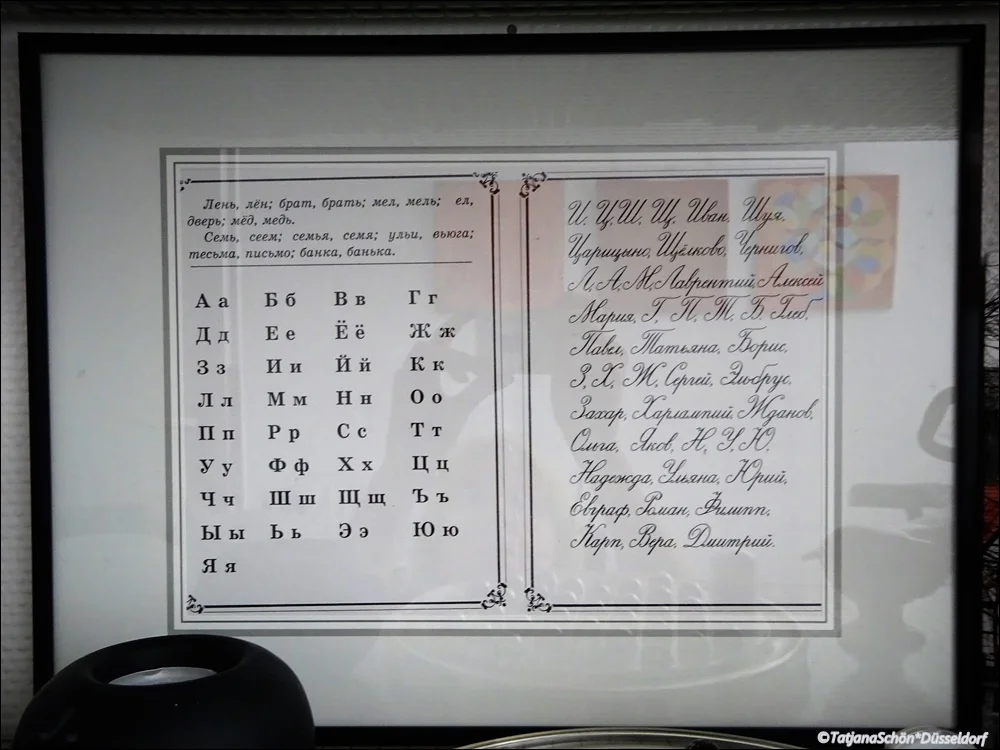 Лень, лён; брат, брать; мел, мель; ел,
дверь; мёд, медь.
Семь, сеем; семья, семя; ульи, вьюга;
тесьма, письмо; банка, банька.
А а Б б В в Г г
Д д Е е Ё ё Ж ж
З з И и Й й К к
Л л М м Н н О о
П п Р р С с Т т
У у Ф ф Х х Ц ц
Ч ч Ш ш Щ щ Ъ ъ
Ы ы Ь ь Э э Ю ю
Я я
И, Ц, Ш, Щ, Иван, Шуя,
Царицыно, Щёлково, Чернигов,
Л, А, М, Лаврентий, Алексей
Мария, Г, П, Т, Б, Глеб,
Павел, Татьяна, Борис,
З, Х, Ж, Сергей, Эльбрус,
Захар, Харлампий, Жданов,
Ольга, Яков, Н, У, Ю,
Надежда, Ульяна, Юрий,
Евграф, Роман, Филипп,
Карп, Вера, Дмитрий.
©TatjanaSchön*Düsseldorf